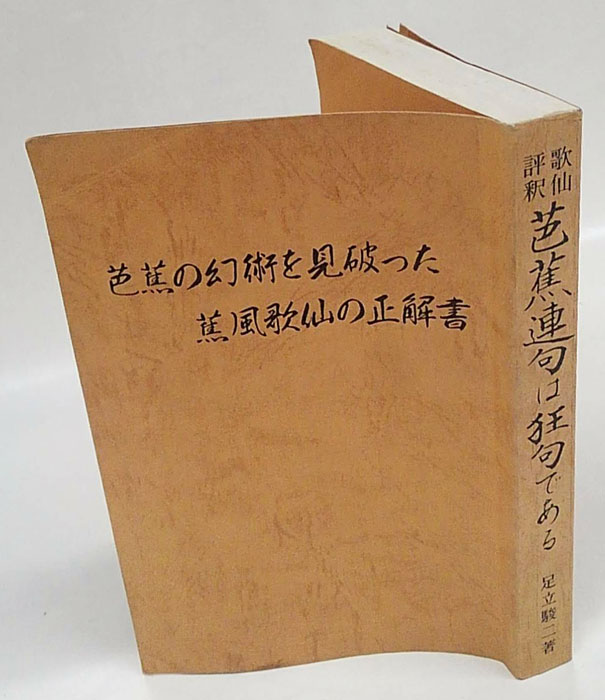 芭蕉の幻術を見破った
蕉風歌仙の正解書
歌仙
評釈
芭蕉連句は狂句である
足立駿二著